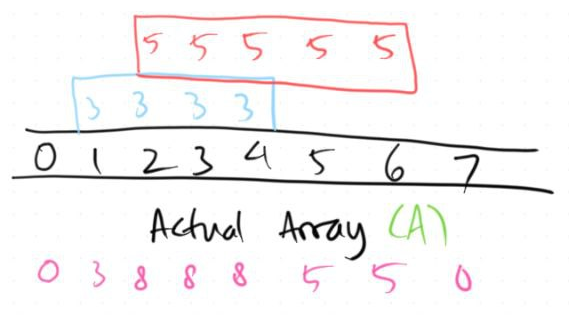 5 5 5 5 5
3 3 3 3
0 1 2 3 4 5 6 7
Actual Array (A)
0 3 8 8 8 5 5 0